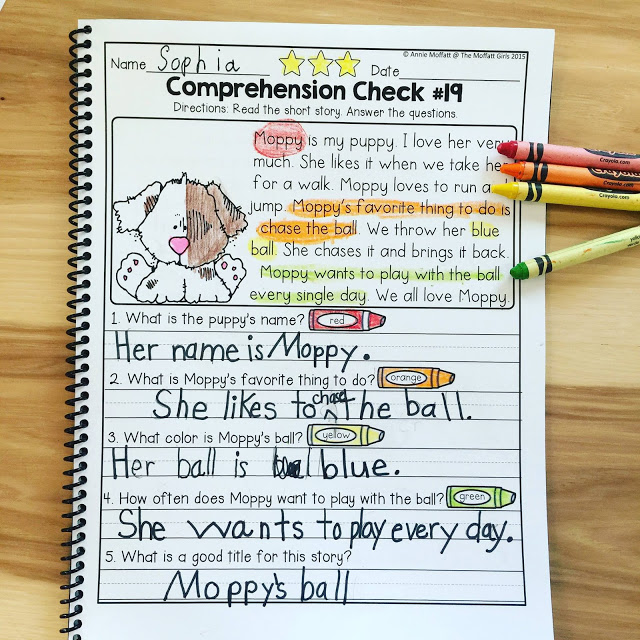 © Annie Moffatt @ The Moffatt Girls 2015
Name Sophia Date
Comprehension Check #19
Directions: Read the short story. Answer the questions.
Moppy is my puppy. I love her very
much. She likes it when we take her
for a walk. Moppy loves to run
jump. Moppy's favorite thing to do is
chase the ball. We throw her blue
ball. She chases it and brings it back.
Moppy wants to play with the ball
every single day. We all love Moppy.
Crayola
Crayola
Crayola
1. What is the puppy's name? red
Her name is Moppy.
2. What is Moppy's favorite thing to do? orange
She likes to chase the ball.
3. What color is Moppy's ball? yellow
Her ball is blue.
4. How often does Moppy want to play with the ball? green
She wants to play every day.
5. What is a good title for this story?
Moppy's ball